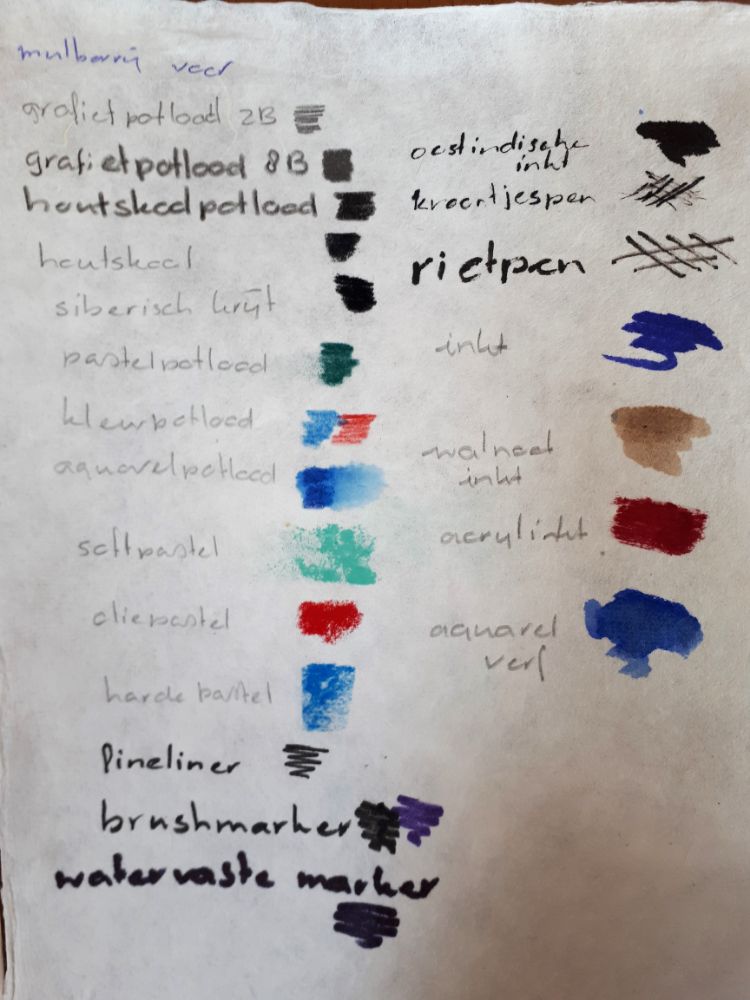 mulberry voor
grafietpotlood 2B
grafietpotlood 8B
houtskoolpotlood
houtskool
siberisch krijt
pastelpotlood
kleurpotlood
aquarelpotlood
softpastel
oliepastel
harde pastel
fineliner
brushmarker
watervaste marker
oostindische
inkt
kroontjespen
rietpen
inkt
walnoot
inkt
acrylinkt
aquarel
verf